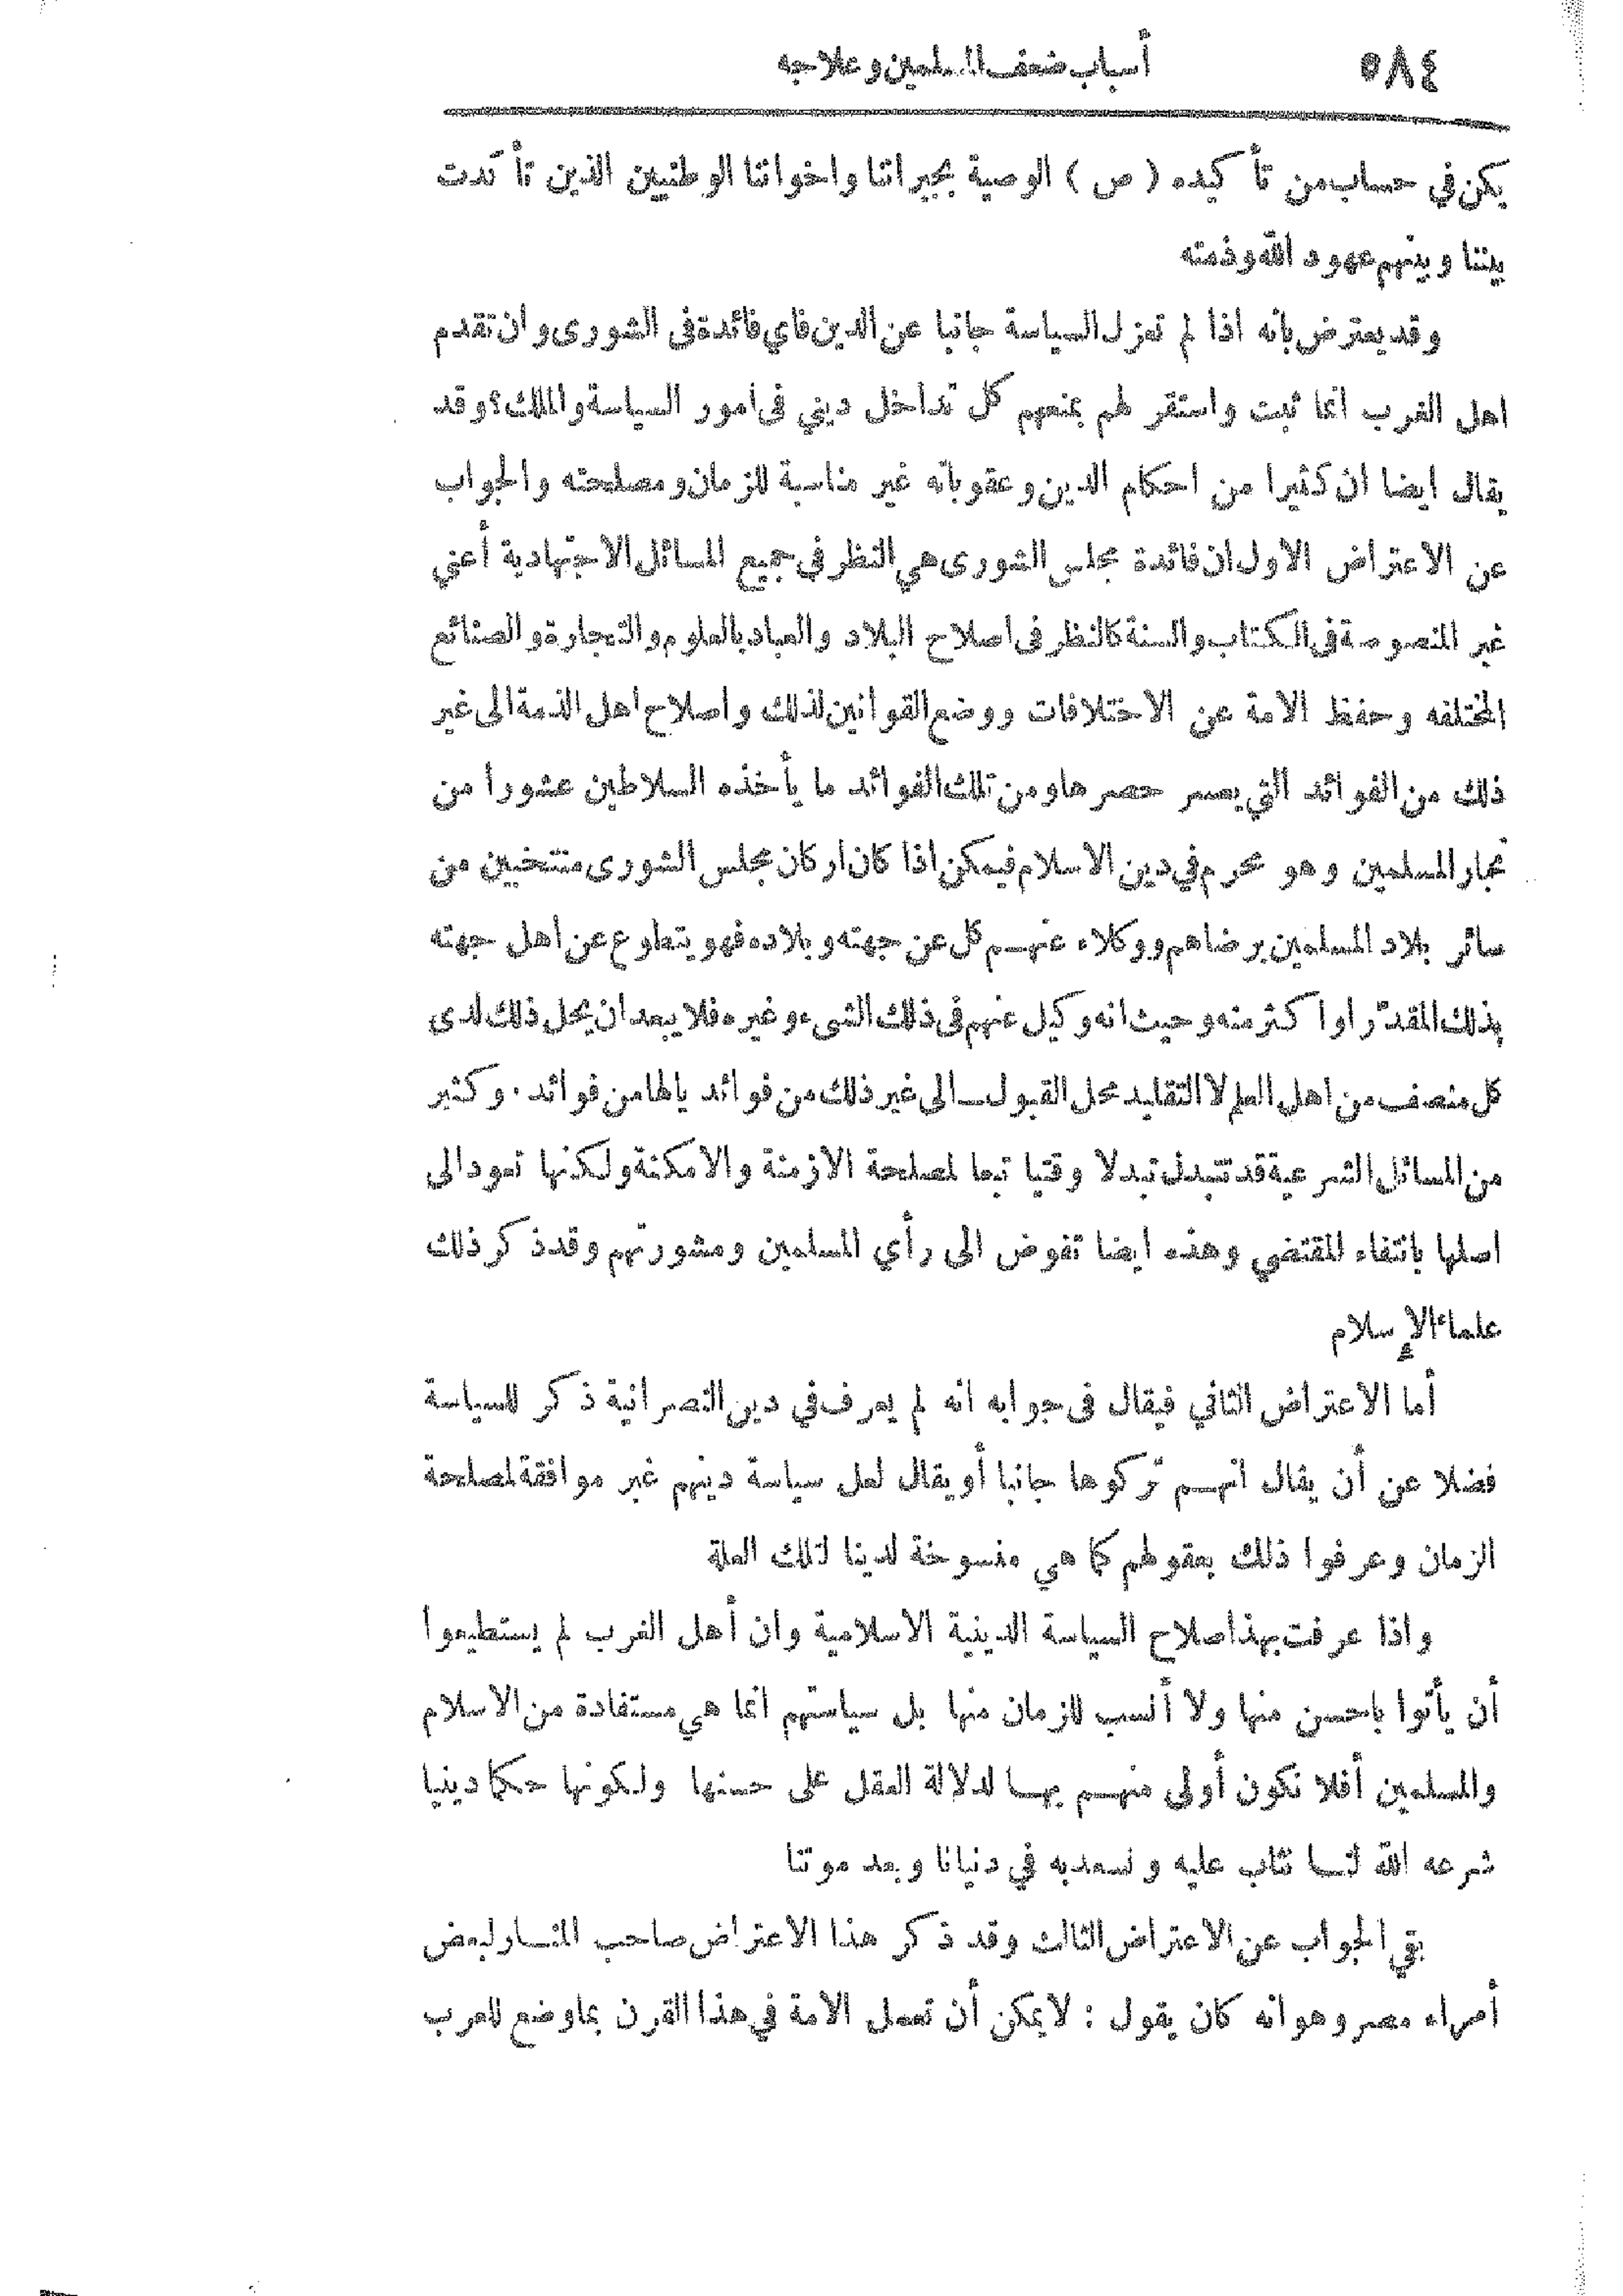 ٥٨٤
أسباب ضعف المسلمين وعلاجه
يكن في حساب من تأكيده (ص) الوصية بجيراننا واخواننا الوطنيين الذين تأكدت
بيننا وبينهم عهود الله وذمته
وقد يعترض بأنه اذا لم تعزل السياسة جانبا عن الدين فاي فائدة فى الشورى وان تقدم
اهل الغرب انما ثبت واستقر لهم بمنعهم كل تداخل ديني فى امور السياسة والملك؟ وقد
يقال ايضا ان كثيرا من احكام الدين وعقوباته غير مناسبة للزمان ومصلحته والجواب
عن الاعتراض الاول ان فائدة مجلس الشورى هي النظر في جميع المسائل الاجتهادية أعني
غير المنصوصة فى الكتاب والسنة كالنظر فى اصلاح البلاد والعباد بالعلوم والتجارة والصنائع
المختلفه وحفظ الامة عن الاختلافات ووضع القوانين لذلك واصلاح اهل الذمة الى غير
ذلك من الفوائد التي يعسر حصرها ومن تلك الفوائد ما يأخذه السلاطين عشورا من
تجار المسلمين وهو محرم في دين الاسلام فيمكن اذا كان اركان مجلس الشورى منتخبين من
سائر بلاد المسلمين برضاهم ووكلاء عنهم كل عن جهته وبلاده فهو يتطوع عن اهل جهته
بذلك المقدر او اكثر منه وحيث انه وكيل عنهم فى ذلك الشىء وغيره فلا يبعد ان يحل ذلك لدى
كل منصف من اهل العلم لا التقليد محل القبول ـ الى غير ذلك من فوائد يالها من فوائد . وكثير
من المسائل الشرعية قد تتبدل تبدلا وقتيا تبعا لمصلحة الازمنة والامكنة ولكنها تعود الى
اصلها بانتفاء المقتضي وهذه ايضا تفوض الى رأي المسلمين ومشورتهم وقد ذكر ذلك
علماء الإسلام
أما الاعتراض الثاني فيقال فى جوابه انه لم يعرف في دين النصرانية ذكر للسياسة
فضلا عن أن يقال انهم تركوها جانبا أو يقال لعل سياسة دينهم غير موافقة لمصلحة
الزمان وعرفوا ذلك بعقولهم كما هي منسوخة لدينا لتلك العلة
واذا عرفت بهذا صلاح السياسة الدينية الاسلامية وان أهل الغرب لم يستطيعوا
أن يأتوا باحسن منها ولا أنسب للزمان منها بل سياستهم انما هي مستفادة من الاسلام
والمسلمين أفلا نكون أولى منهم بها لدلالة العقل على حسنها ولكونها حكما دينيا
شرعه الله لنا نثاب عليه ونسعد به في دنيانا وبعد موتنا
بقي الجواب عن الاعتراض الثالث وقد ذكر هذا الاعتراض صاحب المنار لبعض
أمراء مصر وهو انه كان يقول : لا يمكن أن تعمل الامة في هذا القرن بما وضع للعرب